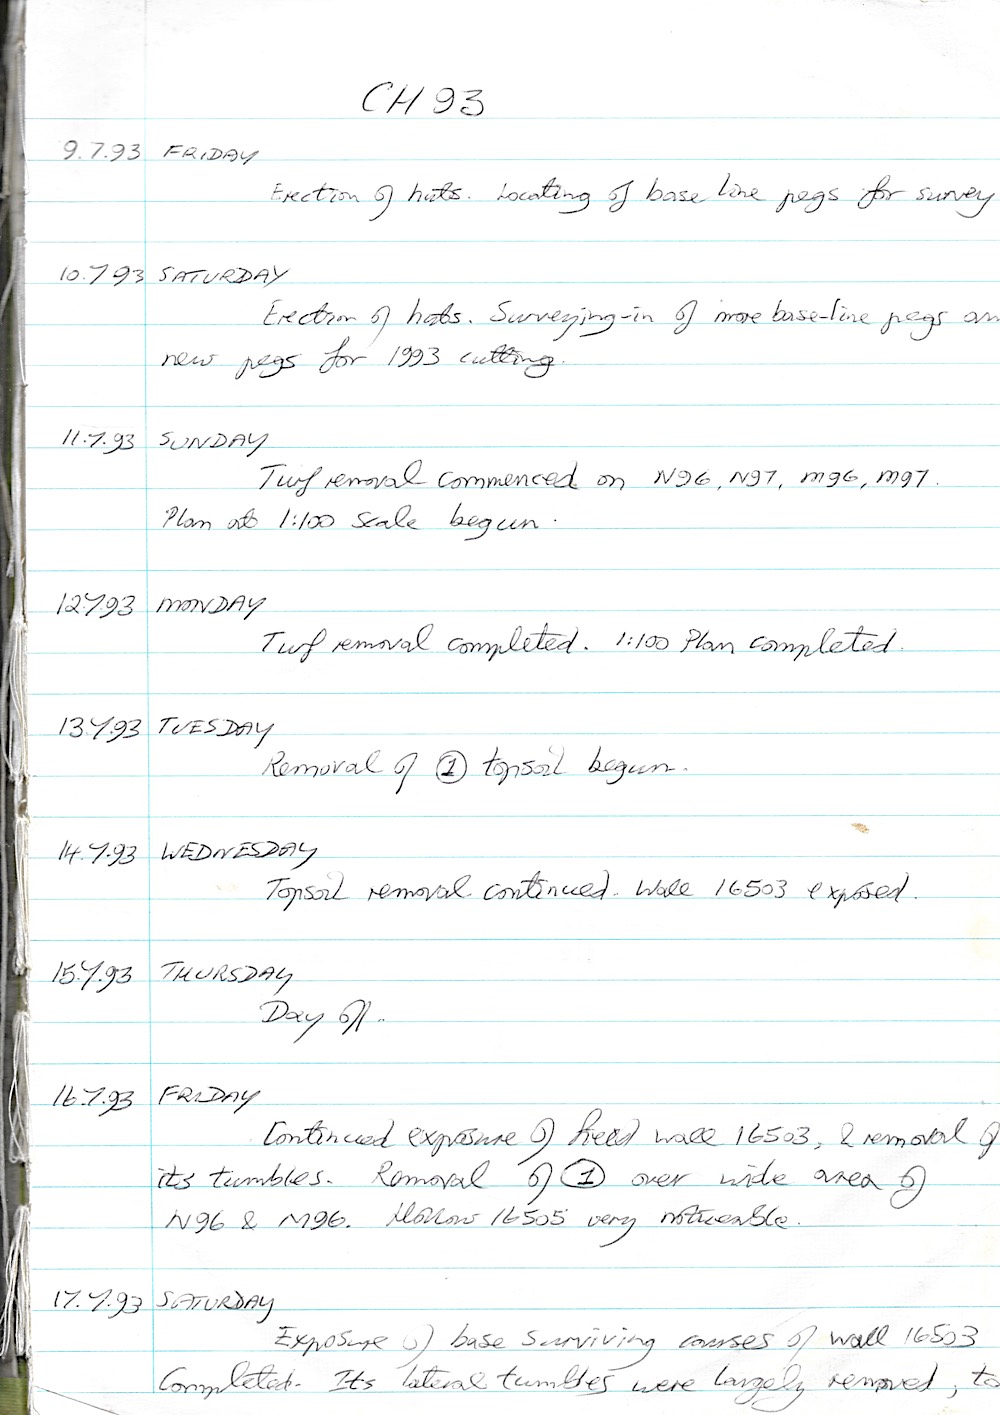 CH 93
9.7.93 FRIDAY
Erection of huts. Locating of base line pegs for survey
10.7.93 SATURDAY
Erection of huts. Surveying-in of more base-line pegs an
new pegs for 1993 cutting.
11.7.93 SUNDAY
Turf removal commenced on N96, N97, M96, M97.
Plan at 1:100 scale begun.
12.7.93 MONDAY
Turf removal completed. 1:100 Plan completed.
13.7.93 TUESDAY
Removal of ① topsoil begun.
14.7.93 WEDNESDAY
Topsoil removal continued. Wall 16503 exposed.
15.7.93 THURSDAY
Day off.
16.7.93 FRIDAY
Continued exposure of field wall 16503, & removal of
its tumbles. Removal of ① over wide area of
N96 & M96. Hollow 16505 very noticeable.
17.7.93 SATURDAY
Exposure of base surviving courses of wall 16503
completed. Its lateral tumbles were largely removed, to